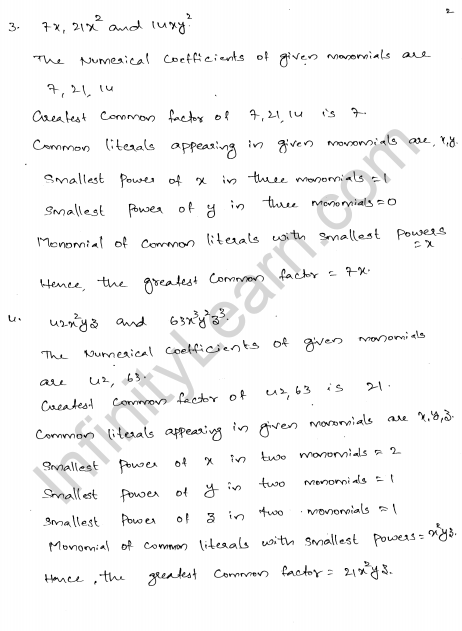 2
3. 7x, 21x² and 14xy².
The Numerical Coefficients of given monomials are
7, 21, 14
Greatest Common factor of 7, 21, 14 is 7.
Common literals appearing in given monomials are x, y.
Smallest Power of x in three monomials = 1
Smallest Power of y in three monomials = 0
Monomial of Common literals with smallest Powers
= x
Hence, the greatest Common factor = 7x.
4. 42x²yz and 63x³y²z³.
The Numerical Coefficients of given monomials
are 42, 63.
Greatest Common factor of 42, 63 is 21.
Common literals appearing in given monomials are x, y, z.
Smallest Power of x in two monomials = 2
Smallest Power of y in two monomials = 1
Smallest Power of z in two monomials = 1
Monomial of common literals with smallest Powers = x²yz.
Hence, the greatest Common factor = 21x²yz.
InfinityLearn.com